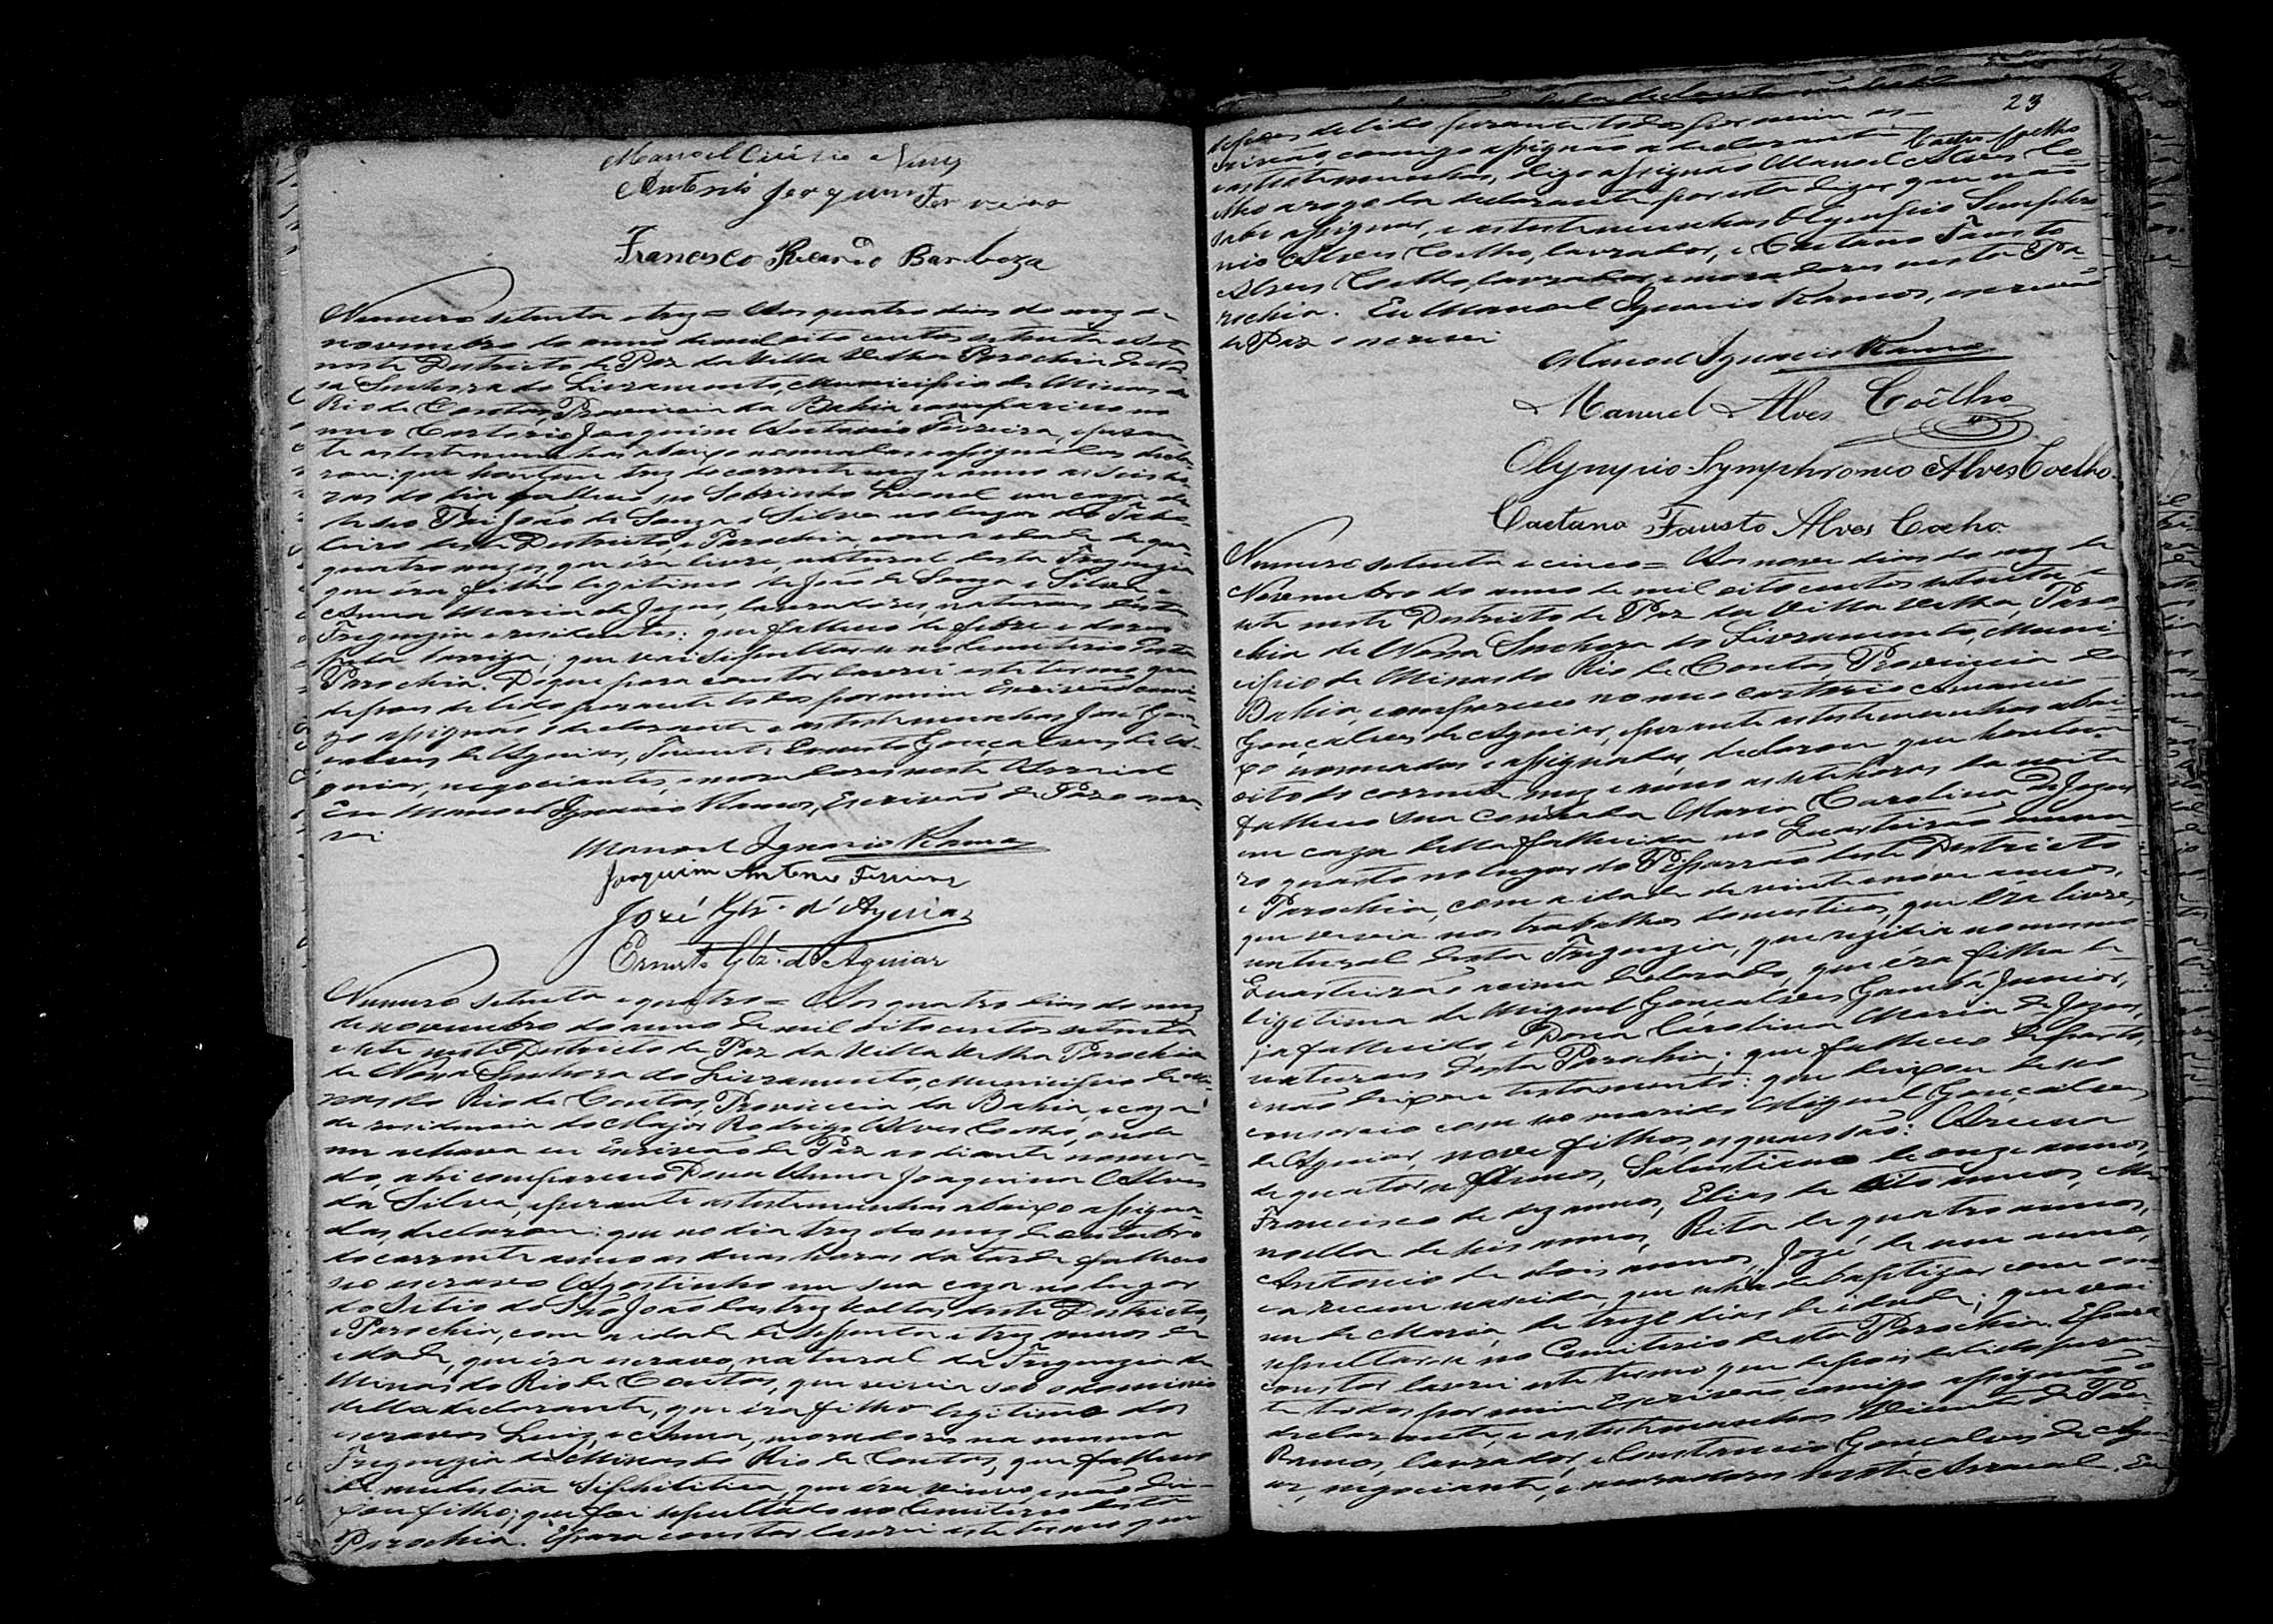 Manoel Nunes
Antonio Joaquim Ferreira
Francisco Ricardo Barboza
Numero setenta e trez = Aos quatro dias do mez de
novembro do anno de mil oito centos setenta e sete
neste Districto de Paz da Villa Velha Parochia de Nos-
sa Senhora do Livramento, Municipio de Minas do
Rio de Contas, Provincia da Bahia compareceo no
meo Cartorio Joaquim Antonio Ferreira, e peran-
te as testemunhas abaixo nomeadas e assignadas decla-
rou: que hontem trez do corrente mez e anno as seis ho-
ras do dia falleceo seo Sobrinho Leonel em caza de
de seo Pai João de Souza e Silva no lugar do Tabo-
leiro deste Districto, e Parochia, com a idade de
quatro mezes, que éra livre, natural desta Freguezia
que éra filho legitimo de João de Souza e Silva, e
Anna Maria de Jezus, lavradores, naturaes desta
Freguezia e residentes: que falleceo de febre e dores
pela barriga; que vai sepultar-se no Cemiterio desta
Parochia. E que para constar lavrei este termo que
depois de lido perante todos por mim Escrivão comi-
go assignão o declarante e as testemunhas José Gon-
çalves de Aguiar, Ernesto Gonçalves de A-
guiar, negociantes, e moradores neste Arraial
Eu Manoel Ignacio Ramos, Escrivão de Paz o escre-
vi
Manoel Ignacio Ramos
Joaquim Antonio Ferreira
José Glz. d'Aguiar
Ernesto Glz. d'Aguiar
Numero setenta e quatro = Aos quatro dias do mez
de novembro do anno de mil oito centos setenta
e sete neste Districto de Paz da Villa Velha Parochia
de Nossa Senhora do Livramento, Municipio de Mi-
nas do Rio de Contas, Provincia da Bahia, e caza
de residencia do Major Rodrigo Alves Coelho, onde
me achava eu Escrivão de Paz ao diante nomea-
do, ahi compareceo Dona Anna Joaquina Alves
da Silva, e perante as testemunhas abaixo assigna-
das, declarou: que no dia trez do mez de outubro
do corrente anno as duas horas da tarde falleceo
seo escravo Agostinho em sua caza no lugar
do Sitio do São João das trez voltas, deste Districto,
e Parochia, com a idade de setenta e trez annos de
idade, que éra escravo, natural da Freguezia de
Minas do Rio de Contas, que vivia sob o dominio
della declarante, que éra filho legitimo dos
escravos Luiz, e Anna, moradores na mesma
Freguezia de Minas do Rio de Contas, que falleceo
de molestia Siphilitica, que éra viuvo e não dei-
xou filho; que foi sepultado no Cemiterio desta
Parochia. E para constar lavrei este termo que
23
depois de lido perante todos por mim es-
crivão, comigo assignão a declarante
e as testemunhas, digo assignão Manoel Alves Co-
elho a rogo da declarante por esta dizer que não
sabe assignar, e as testemunhas Olympio Simphro
nio Alves Coelho, lavrador, e Caetano Fausto
Alves Coelho, lavrador, e moradores nesta Pa-
rochia. Eu Manoel Ignacio Ramos, escrivão
de Paz o escrevi
Manoel Ignacio Ramos
Manuel Alves Coêlho
Olympio Symphronio Alves Coelho.
Caetano Fausto Alves Coelho.
Numero setenta e cinco = Aos nove dias do mez de
Novembro do anno de mil oito centos setenta e
sete neste Districto de Paz da Villa Velha, Paro
chia de Nossa Senhora do Livramento, Muni-
cipio de Minas do Rio de Contas, Provincia da
Bahia, compareceo no meo cartorio Amancio
Gonçalves de Aguiar, e perante as testemunhas abai-
xo nomeadas e assignadas, declarou que hontem
oito do corrente mez e anno as sete horas da noite
falleceo sua cunhada Maria Carolina de Jezus
em caza della fallecida no Quarteirão nume-
ro quarto no lugar do Pissarrão deste Districto
e Parochia, com a idade de vinte e nove annos,
que vivia nos trabalhos domesticos, que éra livre,
natural desta Freguezia, que rezidia no mesmo
Quarteirão acima declarado, que éra filha le-
gitima de Miguel Gonçalves Gambá Junior,
ja fallecido, e Dona Carolina Maria de Jezus,
naturaes desta Parochia; que falleceo de parto,
e não deixou testamento: que deixou de seo
consorcio com seo marido Miguel Gonçalves
de Aguiar, nove filhos, os quaes são:
de quatorze annos, Salustiano de onze annos,
Francisco de dez annos, Elias de oito annos, Ma-
noella de seis annos, Rita de quatro annos,
Antonio de dois annos, José de um anno,
e a recem nascida, que se ha de baptizar com o no-
me de Maria, de treze dias de idade; que vai
sepultar-se no Cemiterio desta Parochia. E para
constar lavrei este termo que depois de lido peran-
te todos por mim Escrivão, comigo assignão o
declarante, e as testemunhas Vicente de Paula
Ramos, lavrador, e Constancio Gonçalves de Agui-
ar, negociante, e moradores neste Arraial. Eu